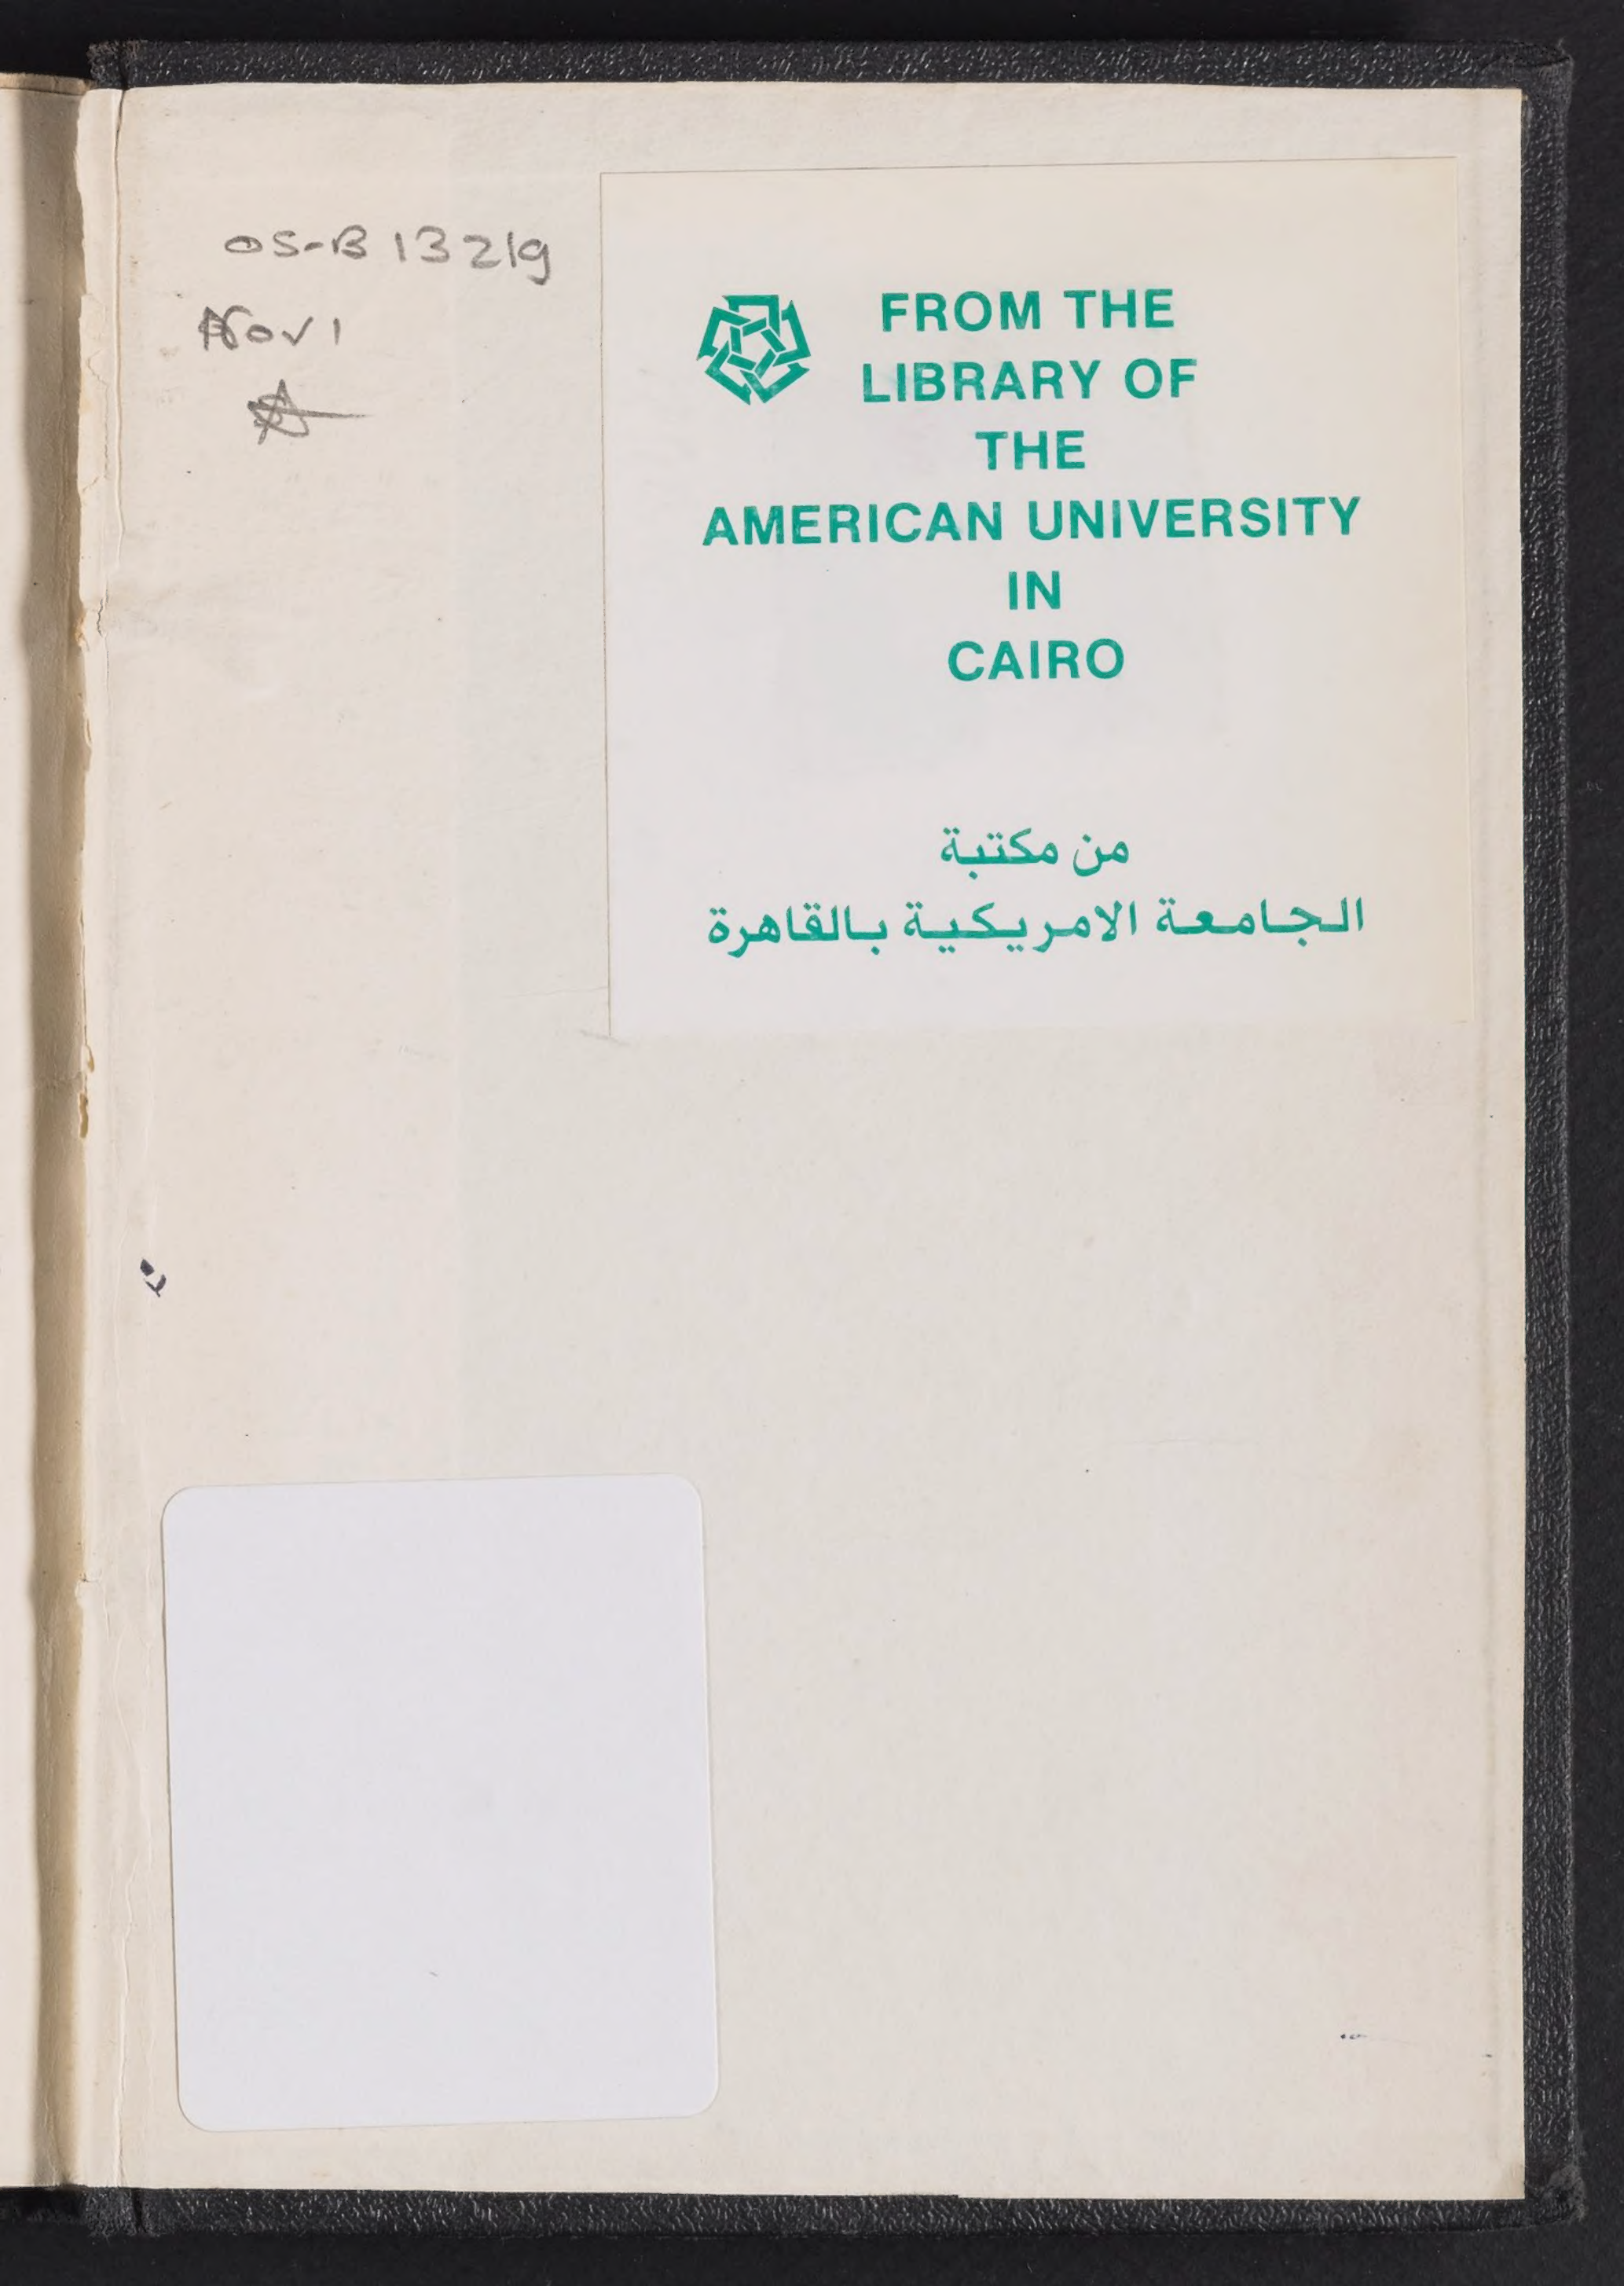 OS-B 13219
Nov 1
FROM THE
LIBRARY OF
THE
AMERICAN UNIVERSITY
IN
CAIRO
من مكتبة
الجامعة الامريكية بالقاهرة